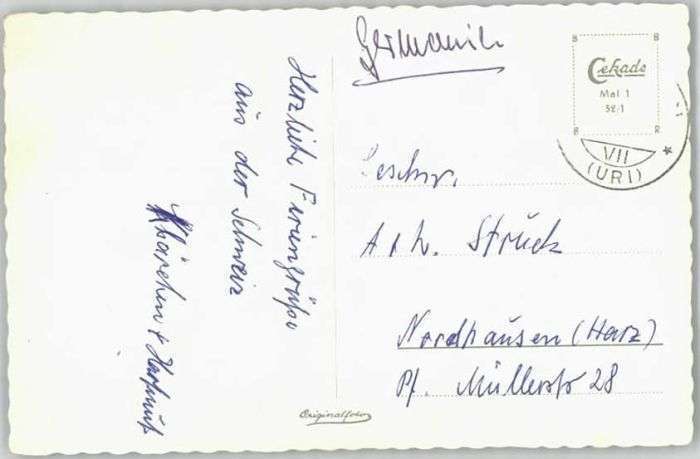 Germania
Cekade
Mal 1
52/1
VII
(URI)
Herzliche Feriengrüße
aus der Schweiz
Bärchen + Hartmut
Geschw.
A + H. Strück
Nordhausen (Harz)
Pf. Müllerstr 28
Originalfoto